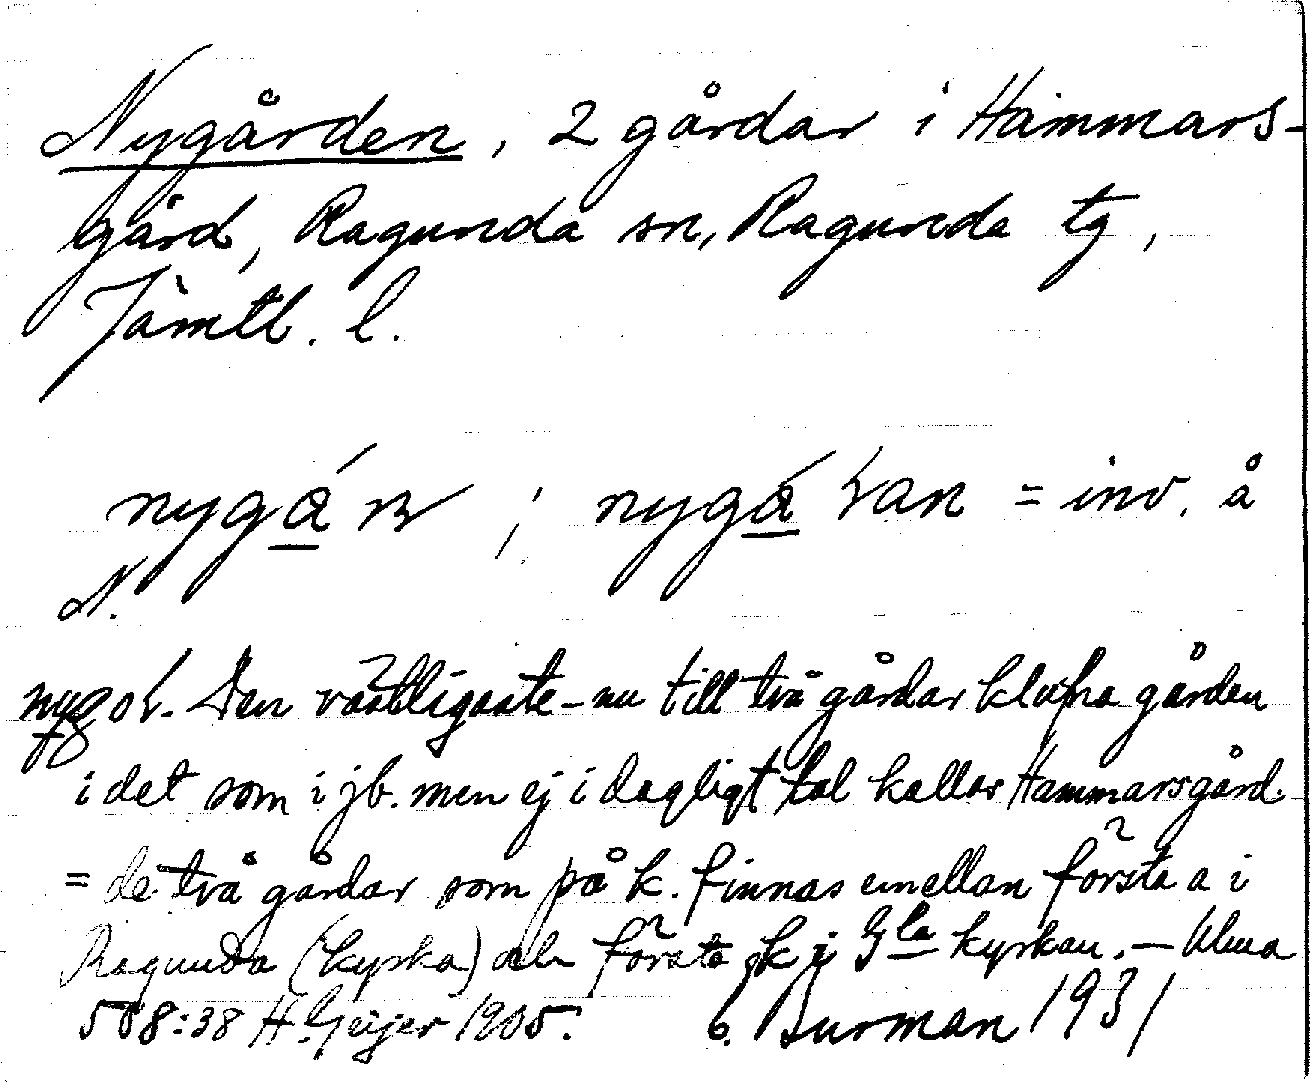 Nygården, 2 gårdar i Hammars-
gård, Ragunda sn, Ragunda tg,
Jämtl. l.
nygá ; nygá an = inv. å
N.
Den västligaste - nu till två gårdar klufna gården
i det som i jb. men ej i dagligt tal kallas Hammarsgård.
= de två gårdar som på k. finnas emellan första a i
Ragunda (kyrka) och första k i Gla kyrkan. — Ulma
508:38 H. Geijer 1905. C. Burman 1931